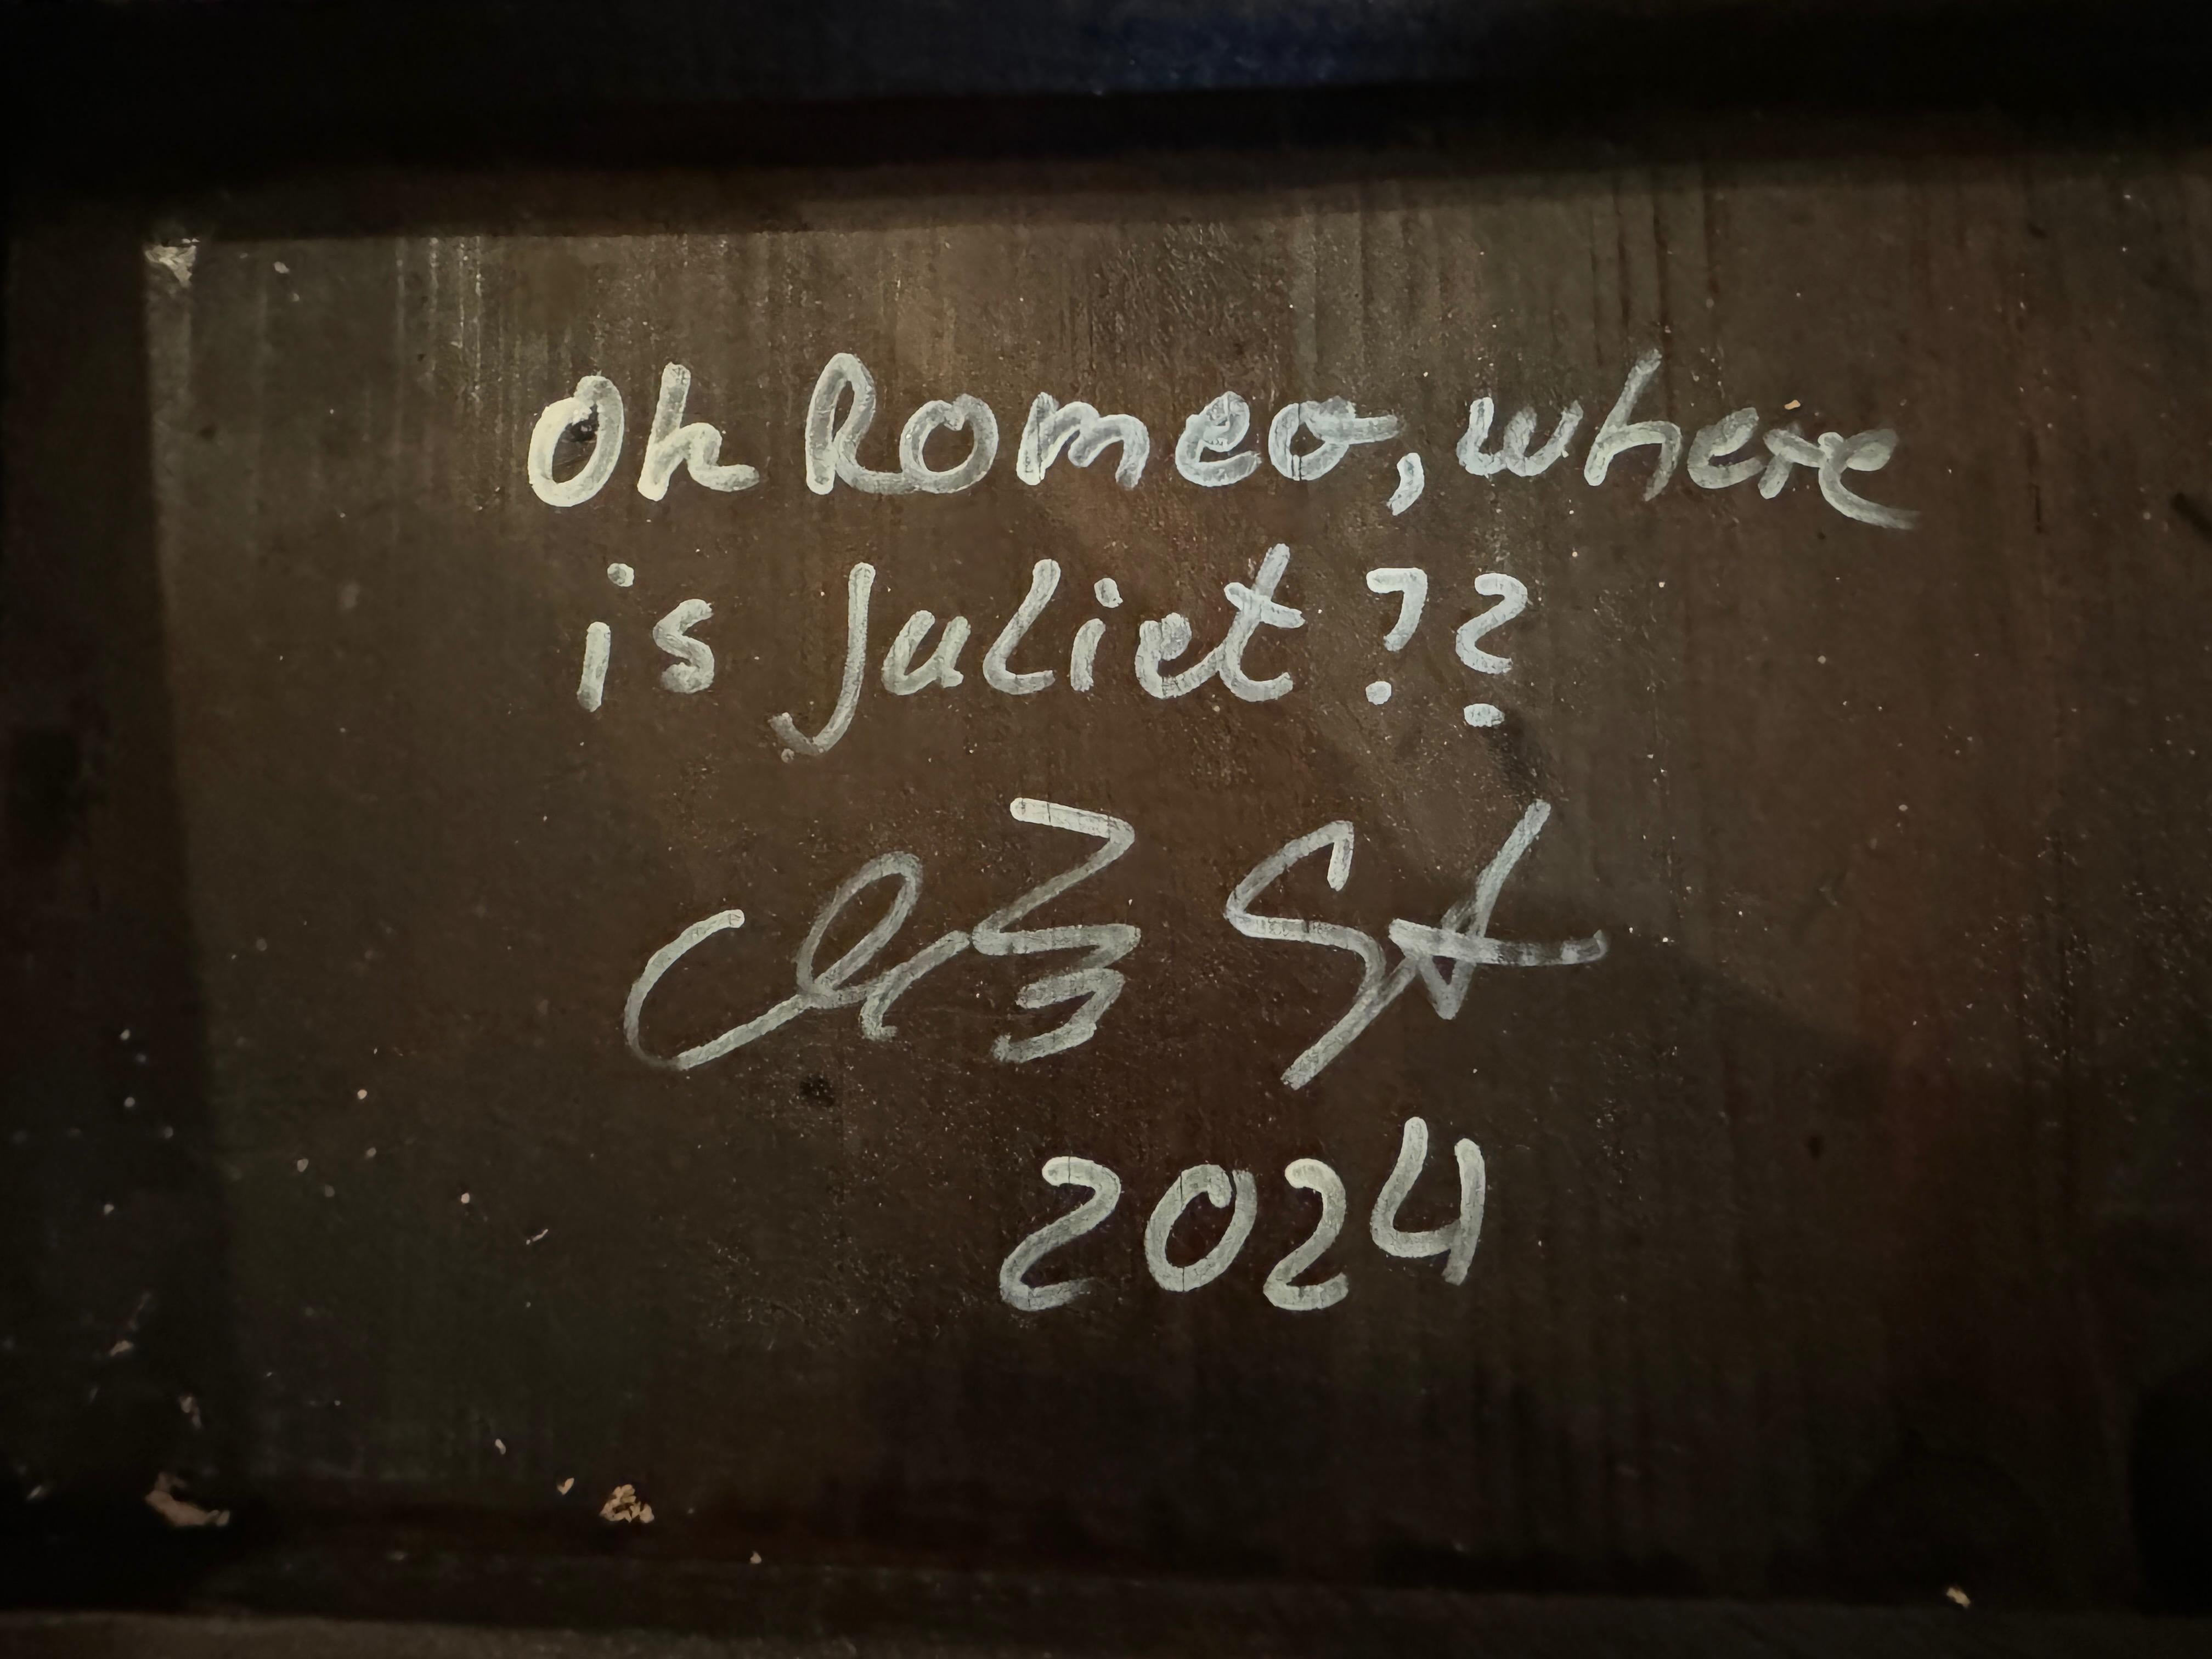 Oh Romeo, where
is Juliet??
2024